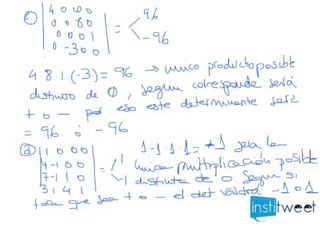 c) |4 0 0 0|
|0 0 8 0|
|0 0 0 1|
|0 -3 0 0| = < 96
-96
4·8·1·(-3) = 96 → unico producto posible
distinto de 0, segun corresponde será
+ o - por eso este determinante será
= 96 ó -96
d) |1 0 0 0|
|4 -1 0 0|
|7 -1 1 0|
|3 1 4 1| = < 1
-1
1·-1·1·1 = -1 sera la
unica multiplicación posible
distinta de 0 segun si
toca que sea + o - el det valdrá -1 o 1
institweet